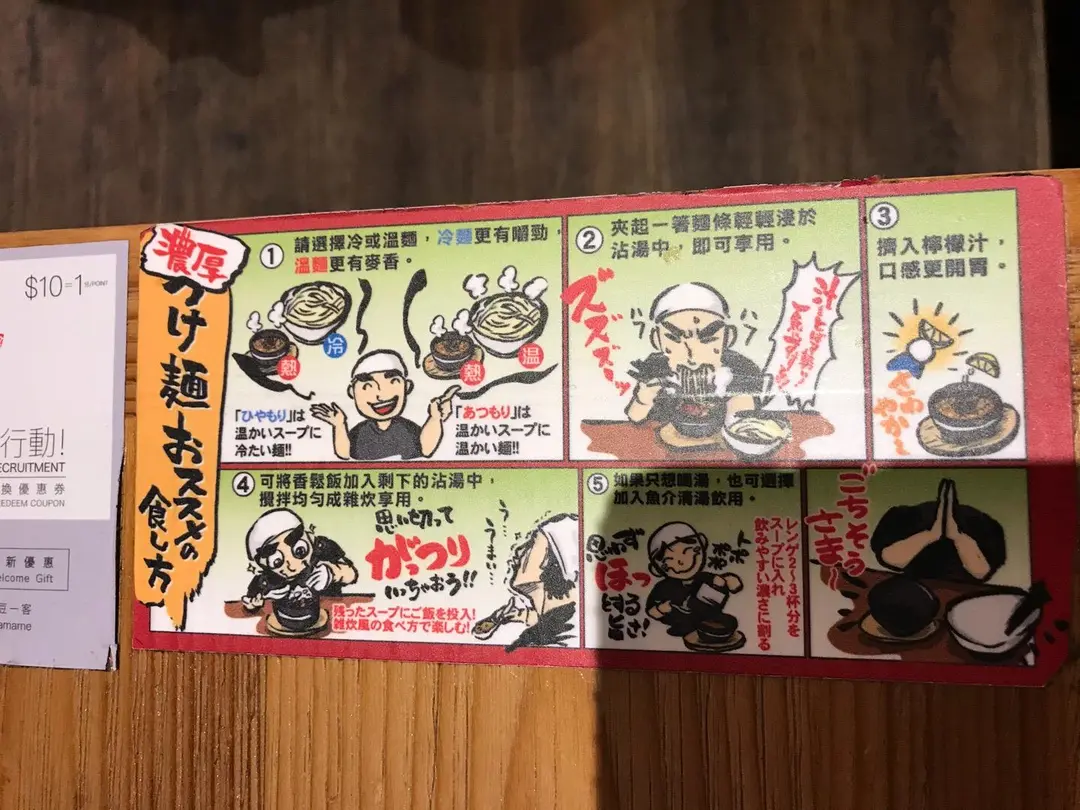 $10=1
行動!
ECRUITMENT
換優惠券
EDEEM COUPON
新優惠
elcome Gift
豆一客
amame
濃厚
つけ麺おススメの
食し方
①
請選擇冷或溫麵,冷麵更有嚼勁,
溫麵更有麥香。
熱
冷
熱
温
「ひやもり」は
温かいスープに
冷たい麺!!
「あつもり」は
温かいスープに
温かい麺!!
②
夾起一箸麵條輕輕浸於
沾湯中,即可享用。
ズズズッ
③
擠入檸檬汁,
口感更開胃。
さわやか〜
④
可將香鬆飯加入剩下的沾湯中,
攪拌均勻成雜炊享用。
思い切って
がっつり
いっちゃおう!!
う…うまい…
残ったスープにご飯を投入!
雑炊風の食べ方で楽しむ!
⑤
如果只想喝湯,也可選擇
加入魚介清湯飲用。
思わず
ほっ
とする旨さ!
レンゲ2〜3杯分を
スープに入れ
飲みやすい濃さに割る
ごちそう
さま〜